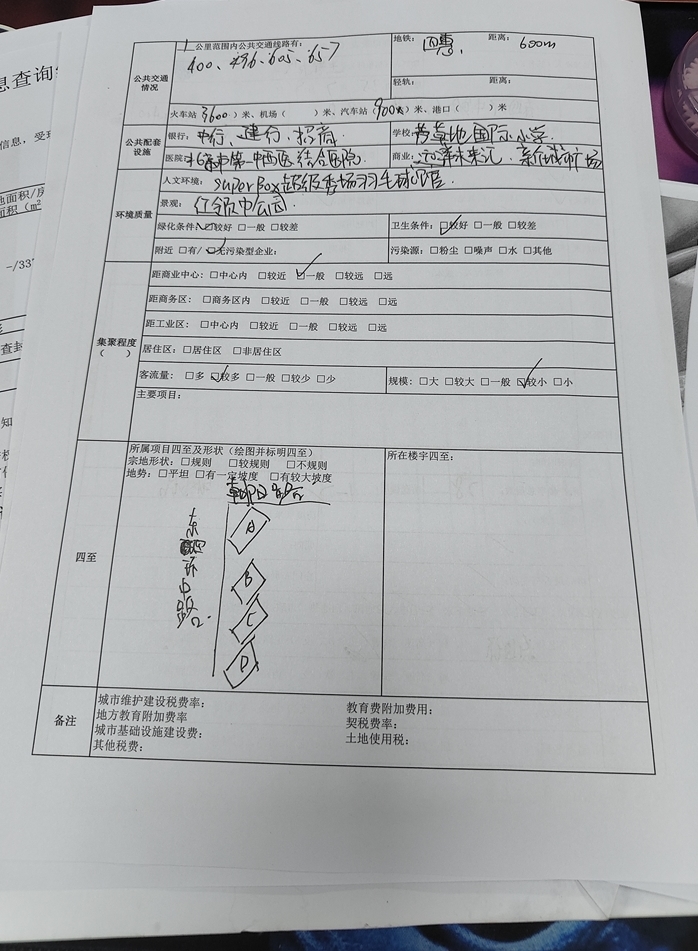 息查询
信息，受理
地面积/房
面积（m²
-/33
查封
知
公共交通情况
1公里范围内公共交通线路有：
400、496、605、657
地铁：四惠， 距离：600m
轻轨： 距离：
火车站（3600）米、机场（ ）米、汽车站（900）米、港口（ ）米
公共配套设施
银行：中行、建行、招商. 学校：芳草地国际小学.
医院：北京市第一中西医结合医院. 商业：远洋未来汇、新城市广场
环境质量
人文环境：superBox超级秀场羽毛球馆.
景观：红领巾公园.
绿化条件：☑较好 □一般 □较差 卫生条件：☑较好 □一般 □较差
附近 □有/☑无污染型企业： 污染源：□粉尘 □噪声 □水 □其他
集聚程度（ ）
距商业中心：□中心内 □较近 ☑一般 □较远 □远
距商务区：□商务区内 □较近 □一般 □较远 □远
距工业区：□中心内 □较近 □一般 □较远 □远
居住区：□居住区 □非居住区
客流量：□多 ☑较多 □一般 □较少 □少 规模：□大 □较大 □一般 ☑较小 □小
主要项目：
四至
所属项目四至及形状（绘图并标明四至） 所在楼宇四至：
宗地形状：□规则 □较规则 □不规则
地势：□平坦 □有一定坡度 □有较大坡度
朝阳路
东四环中路
A
B
C
D
备注
城市维护建设税费率： 教育费附加费用：
地方教育附加费率 契税费率：
城市基础设施建设费： 土地使用税：
其他税费：